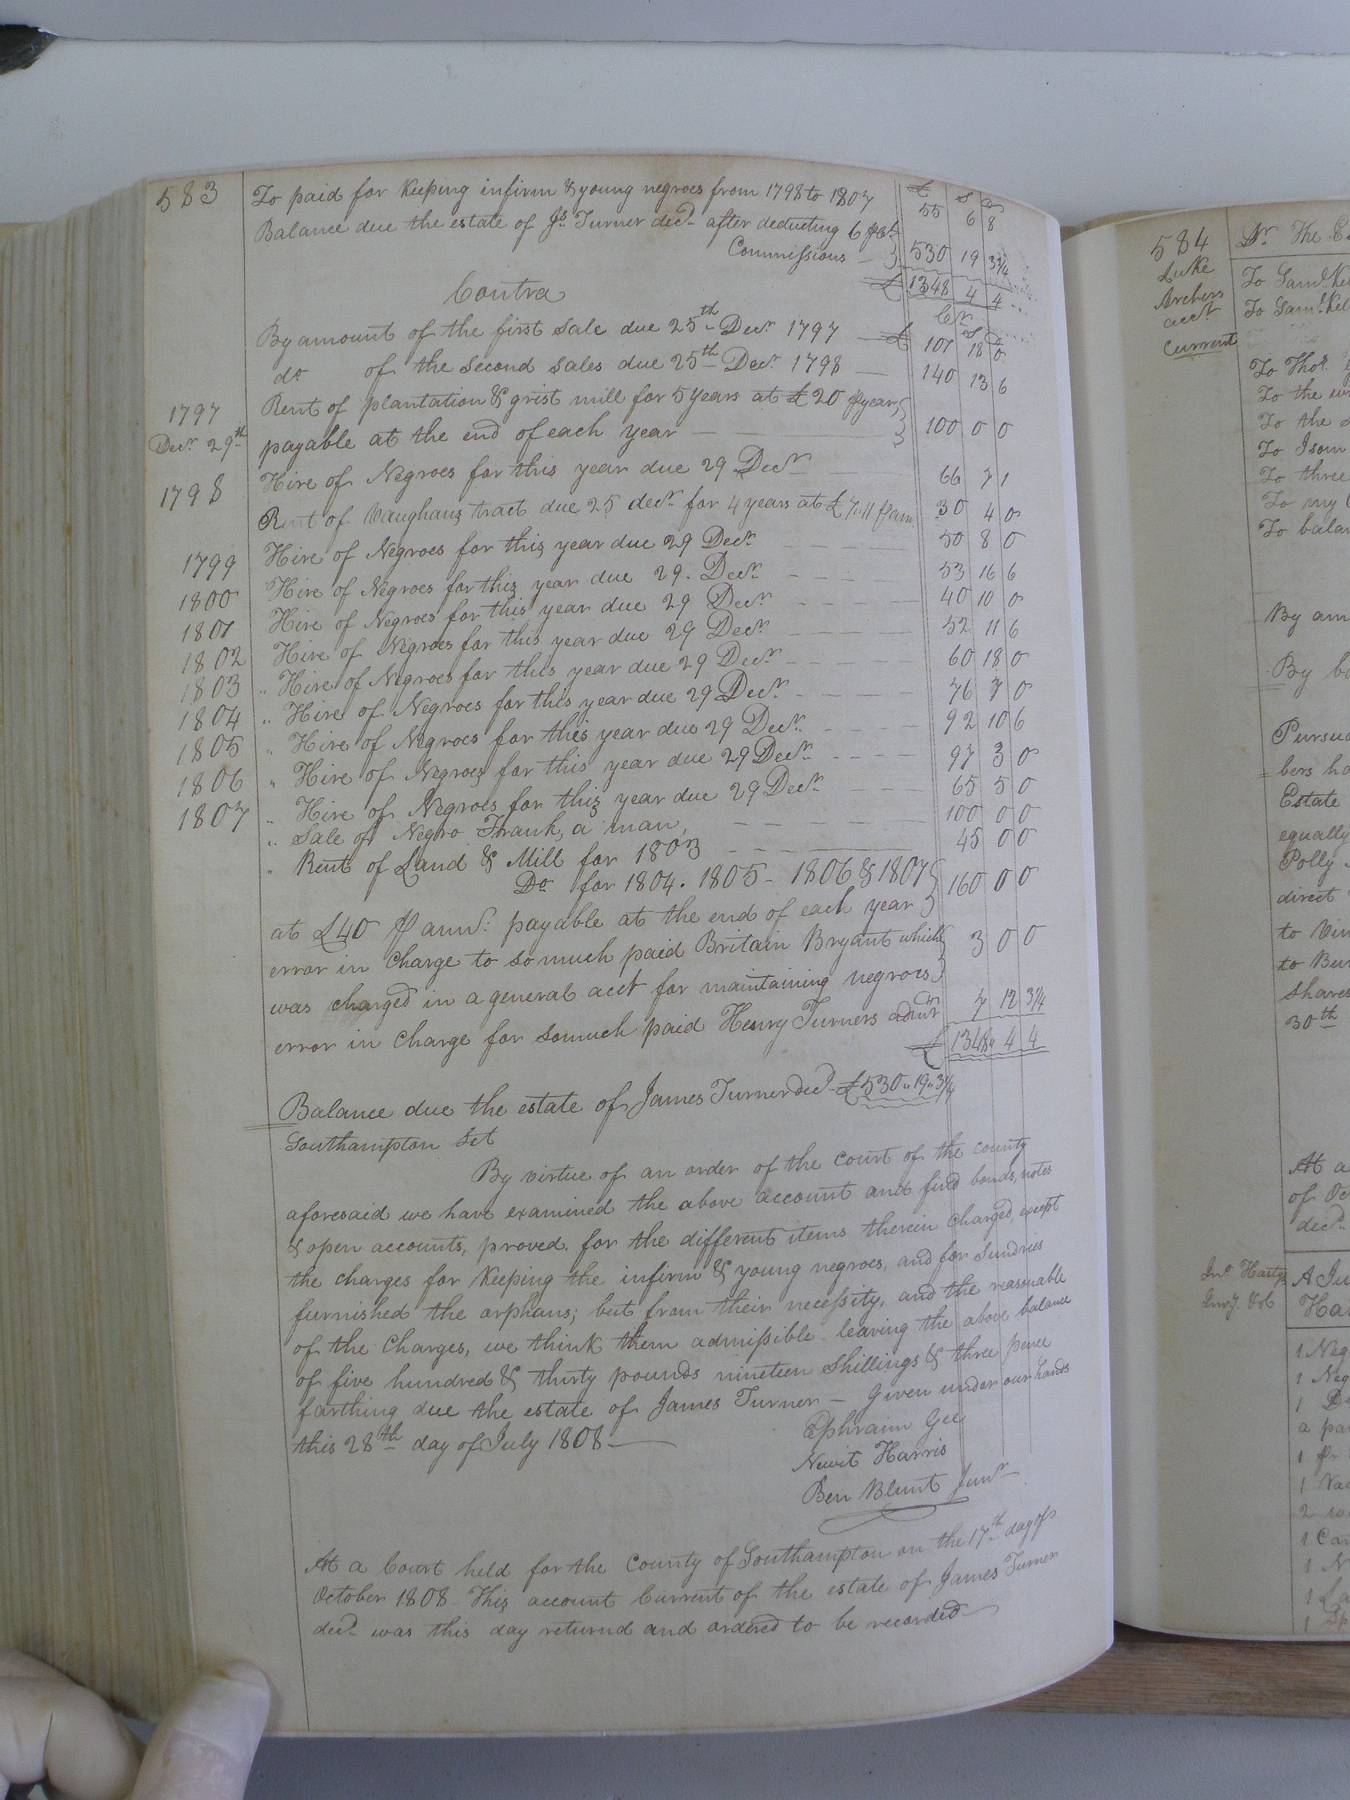 583 To paid for Keeping infirm & young negroes from 1798 to 1807 £ 55 s 6 d 8
Balance due the estate of Js. Turner decd. after deducting 6 prCt
Commissions 530 19 3 1/4
£ 1348 4 4
Contra Cr.
£ s d
By amount of the first Sale due 25th Decr. 1797 — £ 107 18 0
do of the second sales due 25th Decr. 1798 — 140 13 6
1797 Rent of plantation & grist mill for 5 years at £20 pr year
Decr. 29th payable at the end of each year — 100 0 0
1798 Hire of Negroes for this year due 29 Decr. 66 7 1
Rent of Vaughans tract due 25 decr. for 4 years at £7.11 pr ann. 30 4 0
1799 Hire of Negroes for this year due 29 Decr. 50 8 0
1800 Hire of Negroes for this year due 29. Decr. 53 16 6
1801 Hire of Negroes for this year due 29 Decr. 40 10 0
1802 Hire of Negroes for this year due 29 Decr. 52 11 6
1803 " Hire of Negroes for this year due 29 Decr. 60 18 0
1804 " Hire of Negroes for this year due 29 Decr. 76 7 0
1805 " Hire of Negroes for this year due 29 Decr. 92 10 6
1806 " Hire of Negroes for this year due 29 Decr. 97 3 0
1807 " Hire of Negroes for this year due 29 Decr. 65 5 0
" Sale of Negro Frank, a man, 100 0 0
" Rent of Land & Mill for 1803 45 0 0
Do for 1804. 1805 - 1806 & 1807 160 0 0
at £40 pr annu: payable at the end of each year
error in Charge to so much paid Britain Bryant which 3 0 0
was charged in a general acct for maintaining negroes
error in Charge for so much paid Henry Turners admr 7 12 3 1/4
£ 1348 4 4
Balance due the estate of James Turner decd. £530 " 19 " 3 1/4
Southampton Sct
By virtue of an order of the court of the county
aforesaid we have examined the above account and find bonds, notes
& open accounts, proved, for the different items therein Charged, except
the charges for Keeping the infirm & young negroes, and for Sundries
furnished the orphans; but from their necessity, and the reasonable
of the Charges, we think them admissible leaving the above balance
of five hundred & thirty pounds nineteen Shillings & three pence
farthing due the estate of James Turner — Given under our hands
this 28th day of July 1808 —
Ephraim Gee
Newit Harris
Ben Blunt Junr
At a Court held for the County of Southampton on the 17th day of
October 1808 This account Current of the estate of James Turner
decd. was this day returnd and ordered to be recorded
584 Dr. The E
Luke
Archers
acct
Current
To Saml. Ke
To Saml. Kel
To Thos.
To the
To the
To Isom
To three
To my
To balan
By am
By b
Pursu
bers ha
Estate
equally
Polly
direct
to Vin
to Ben
shares
30th
At a
of Oc
decd.
Jno. Harty
Invy. &c
A Ju
Ha
1 Neg
1 Neg
1
a pa
1
1
2
1 Ca
1 N
1 La
1 Sp